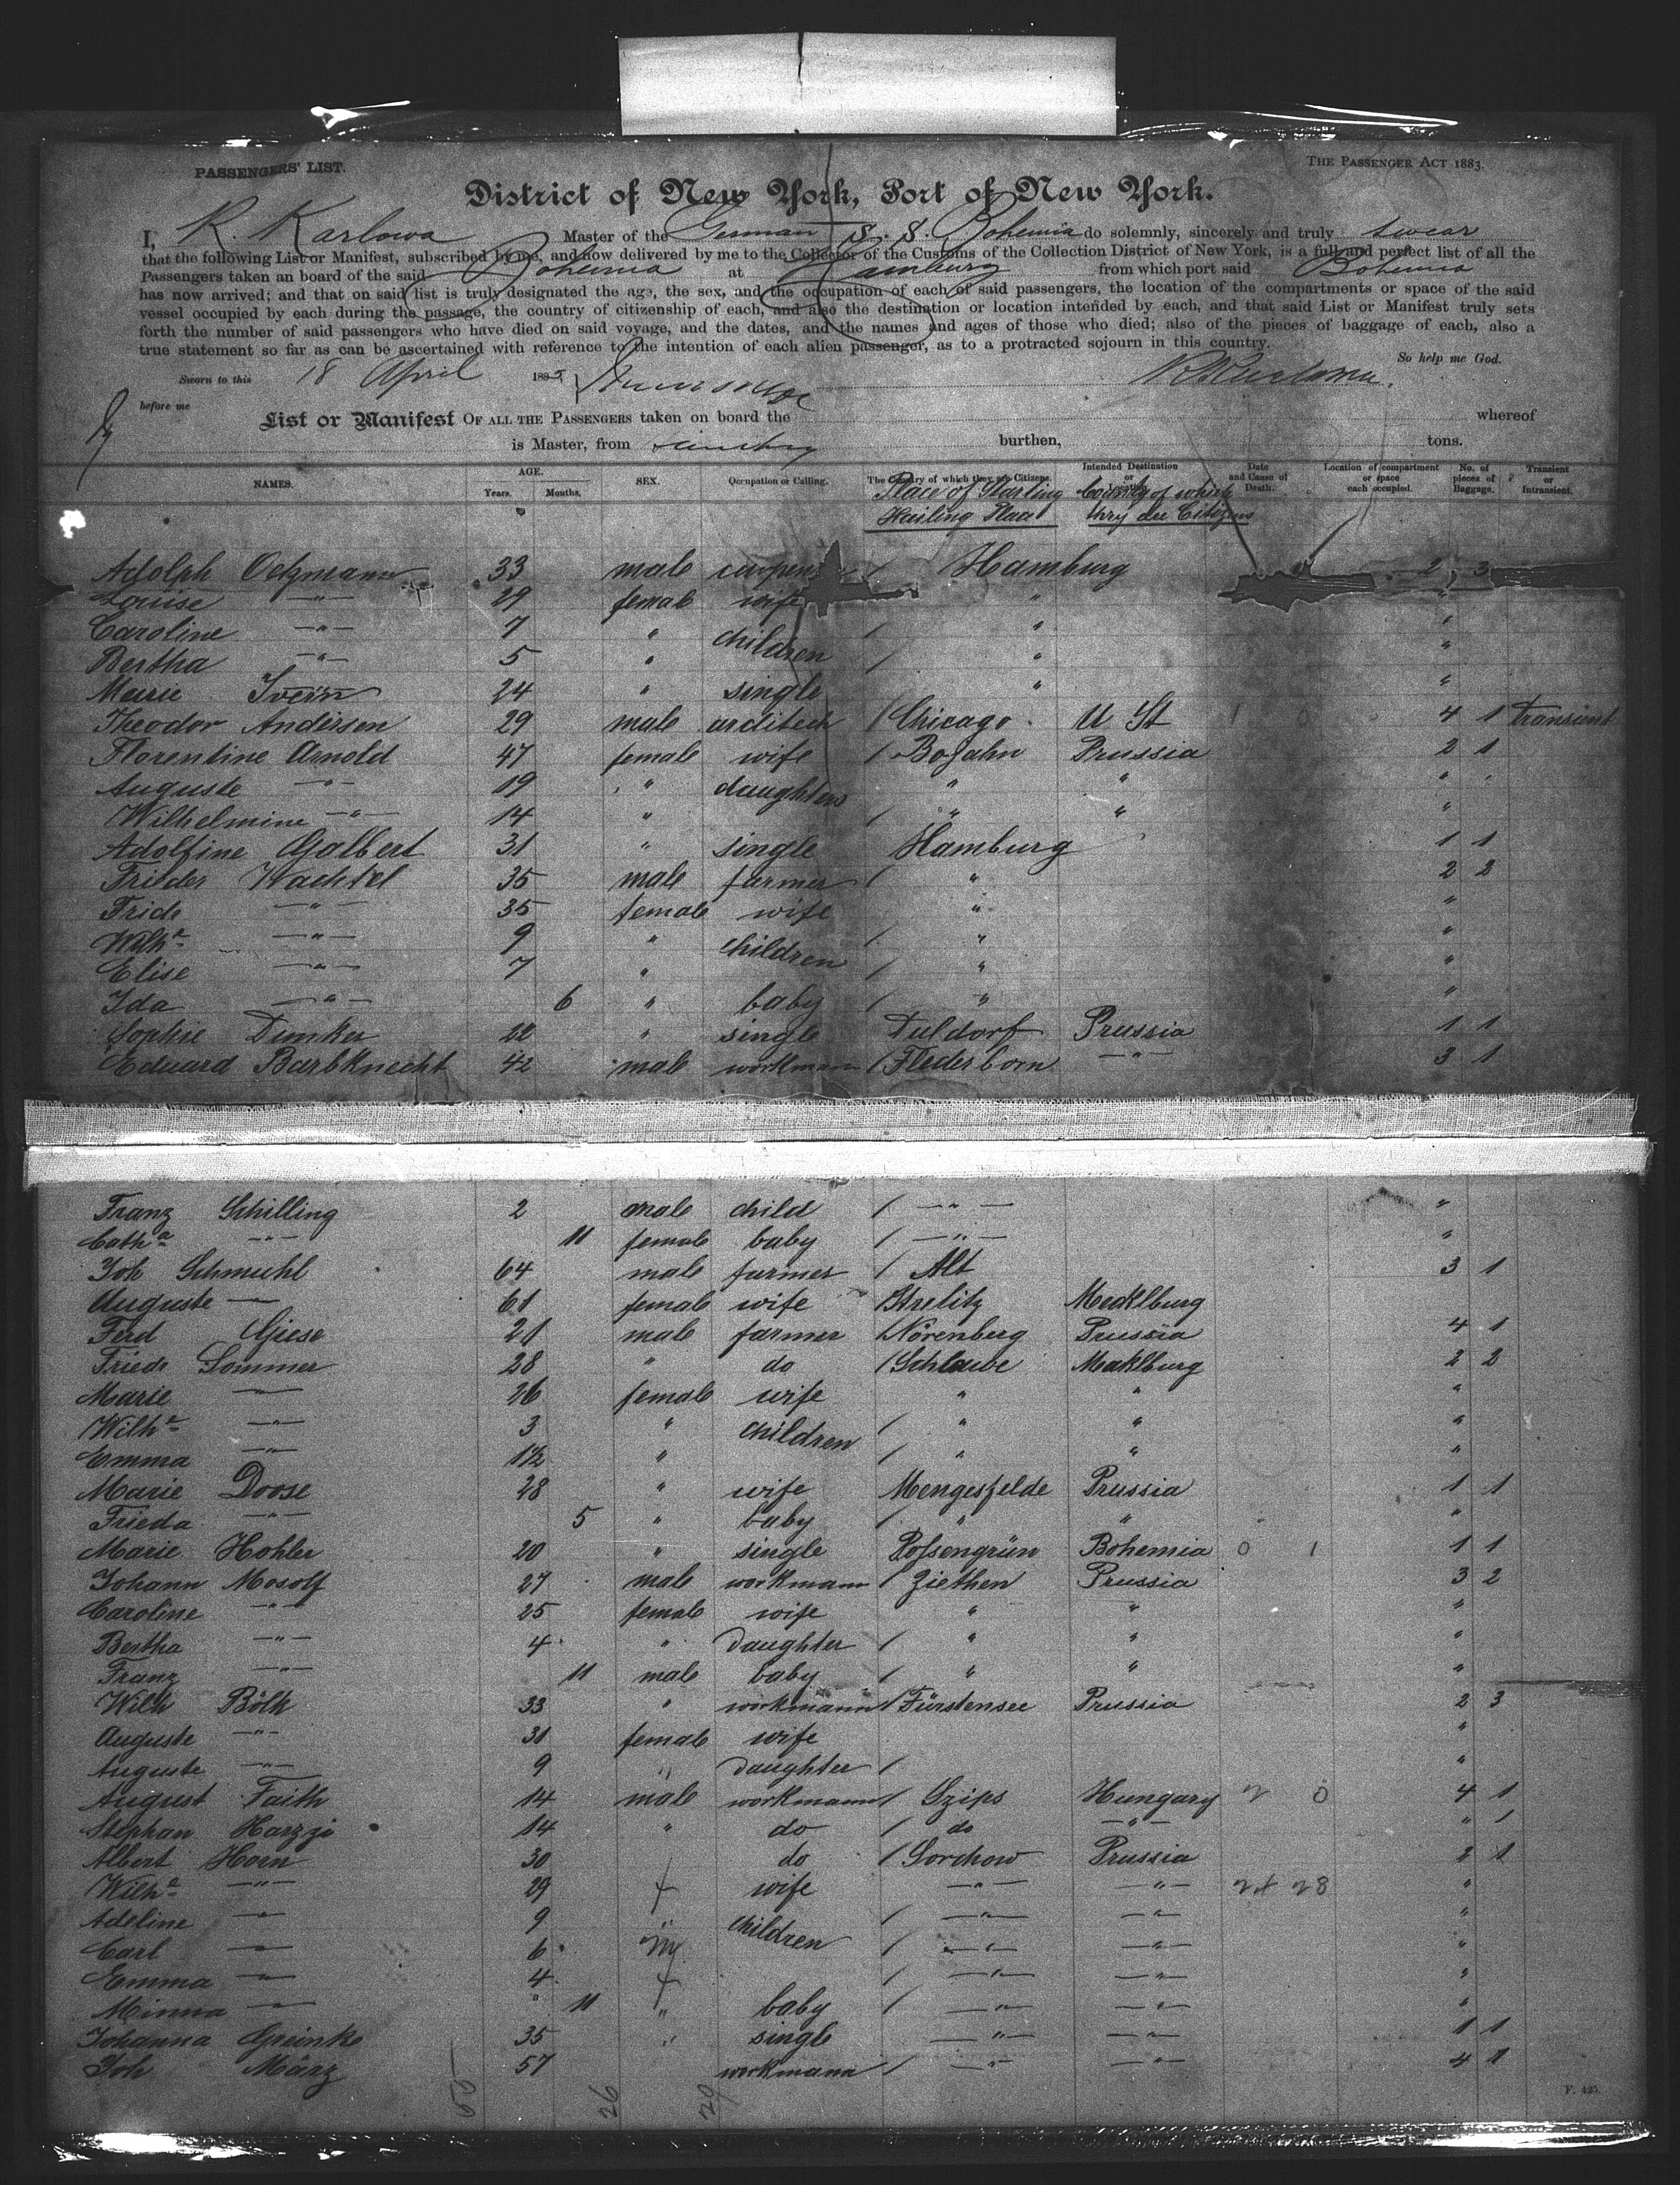 PASSENGERS' LIST.
THE PASSENGER ACT 1883.
District of New York, Port of New York.
I, R. Karlowa Master of the German S. S. Bohemia do solemnly, sincerely and truly swear
that the following List or Manifest, subscribed by me, and now delivered by me to the Collector of the Customs of the Collection District of New York, is a full and perfect list of all the
Passengers taken an board of the said Bohemia at Hamburg from which port said Bohemia
has now arrived; and that on said list is truly designated the age, the sex, and the occupation of each of said passengers, the location of the compartments or space of the said
vessel occupied by each during the passage, the country of citizenship of each, and also the destination or location intended by each, and that said List or Manifest truly sets
forth the number of said passengers who have died on said voyage, and the dates, and the names and ages of those who died; also of the pieces of baggage of each, also a
true statement so far as can be ascertained with reference to the intention of each alien passenger, as to a protracted sojourn in this country.
So help me God.
Sworn to this 18 April 1885 R Karlowa.
before me
List or Manifest OF ALL THE PASSENGERS taken on board the whereof
is Master, from burthen, tons.
NAMES. AGE. Years. Months. SEX. Occupation or Calling. The Country of which they are Citizens. Intended Destination or Location. Date and Cause of Death. Location of compartment or space each occupied. No. of pieces of Baggage. Transient or Intransient.
Place of Starting Country of which
Hailing Place they are Citizens
Adolph Oetzmann 33 male carpenter / Hamburg 2 3
Louise —"— 29 female wife " "
Caroline —"— 7 " children / " "
Bertha —"— 5 " / " "
Marie 24 " single " "
Theodor Andersen 29 male architeck / Chicago. U St 1 0 4 1 transient
Florentine Arnold 47 female wife / Bojahn Prussia 2 1
Auguste —"— 19 " daughters " " "
Wilhelmine —"— 14 " / " " "
Adolfine Galbert 31 " single Hamburg 1 1
Frieder Wachtel 35 male farmer / " 2 2
Fride —"— 35 female wife " "
Wilhe —"— 9 " children / " "
Elise —"— 7 " / " "
Ida —"— 6 " baby / " "
Sophie Dunker 22 " single Duldorf Prussia 1 1
Eduard Barbknecht 42 male workmann / Flederborn —"— 3 1
Franz Schilling 2 male child / —"— "
Catha —"— 11 female baby / —"— "
Joh Schmuhl 64 male farmer / Alt 3 1
Auguste — 61 female wife Strelitz Mecklburg
Ferd Giese 21 male farmer / Nörenberg Prussia 4 1
Friedr Sommer 28 " do / Schlawe Meklburg 2 2
Marie —"— 26 female wife " " "
Wilhe —"— 3 " children / " " "
Emma —"— 1½ " / " " "
Marie Doose 28 " wife Mengesfelde Prussia 1 1
Frieda —"— 5 " baby / " " "
Marie Hohler 20 " single Possengrün Bohemia 0 1 1 1
Johann Mosolf 27 male workmann / Ziethen Prussia 3 2
Caroline —"— 25 female wife " " "
Bertha —"— 4 " daughter / " " "
Franz —"— 11 male baby / " " "
Wilh Bölk 33 " workmann / Fürstensee Prussia 2 3
Auguste —"— 31 female wife "
Auguste —"— 9 " daughter / "
August Faith 14 male workmann / Szips Hungary 2 0 4 1
Stephan Harzzi 14 " do / do —"— " 1
Albert Horn 30 do / Gorchow Prussia 2 1
Wilhe —"— 29 f wife —"— —"— 24 28 "
Adeline —"— 9 " children / —"— —"— "
Carl —"— 6 m / —"— —"— "
Emma —"— 4 f / —"— —"— "
Minna —"— " 11 " baby / —"— —"— "
Johanna Greinke 35 " single —"— —"— 1 1
Joh März 57 workmann / —"— —"— 4 1
55 26 29
F. 425.